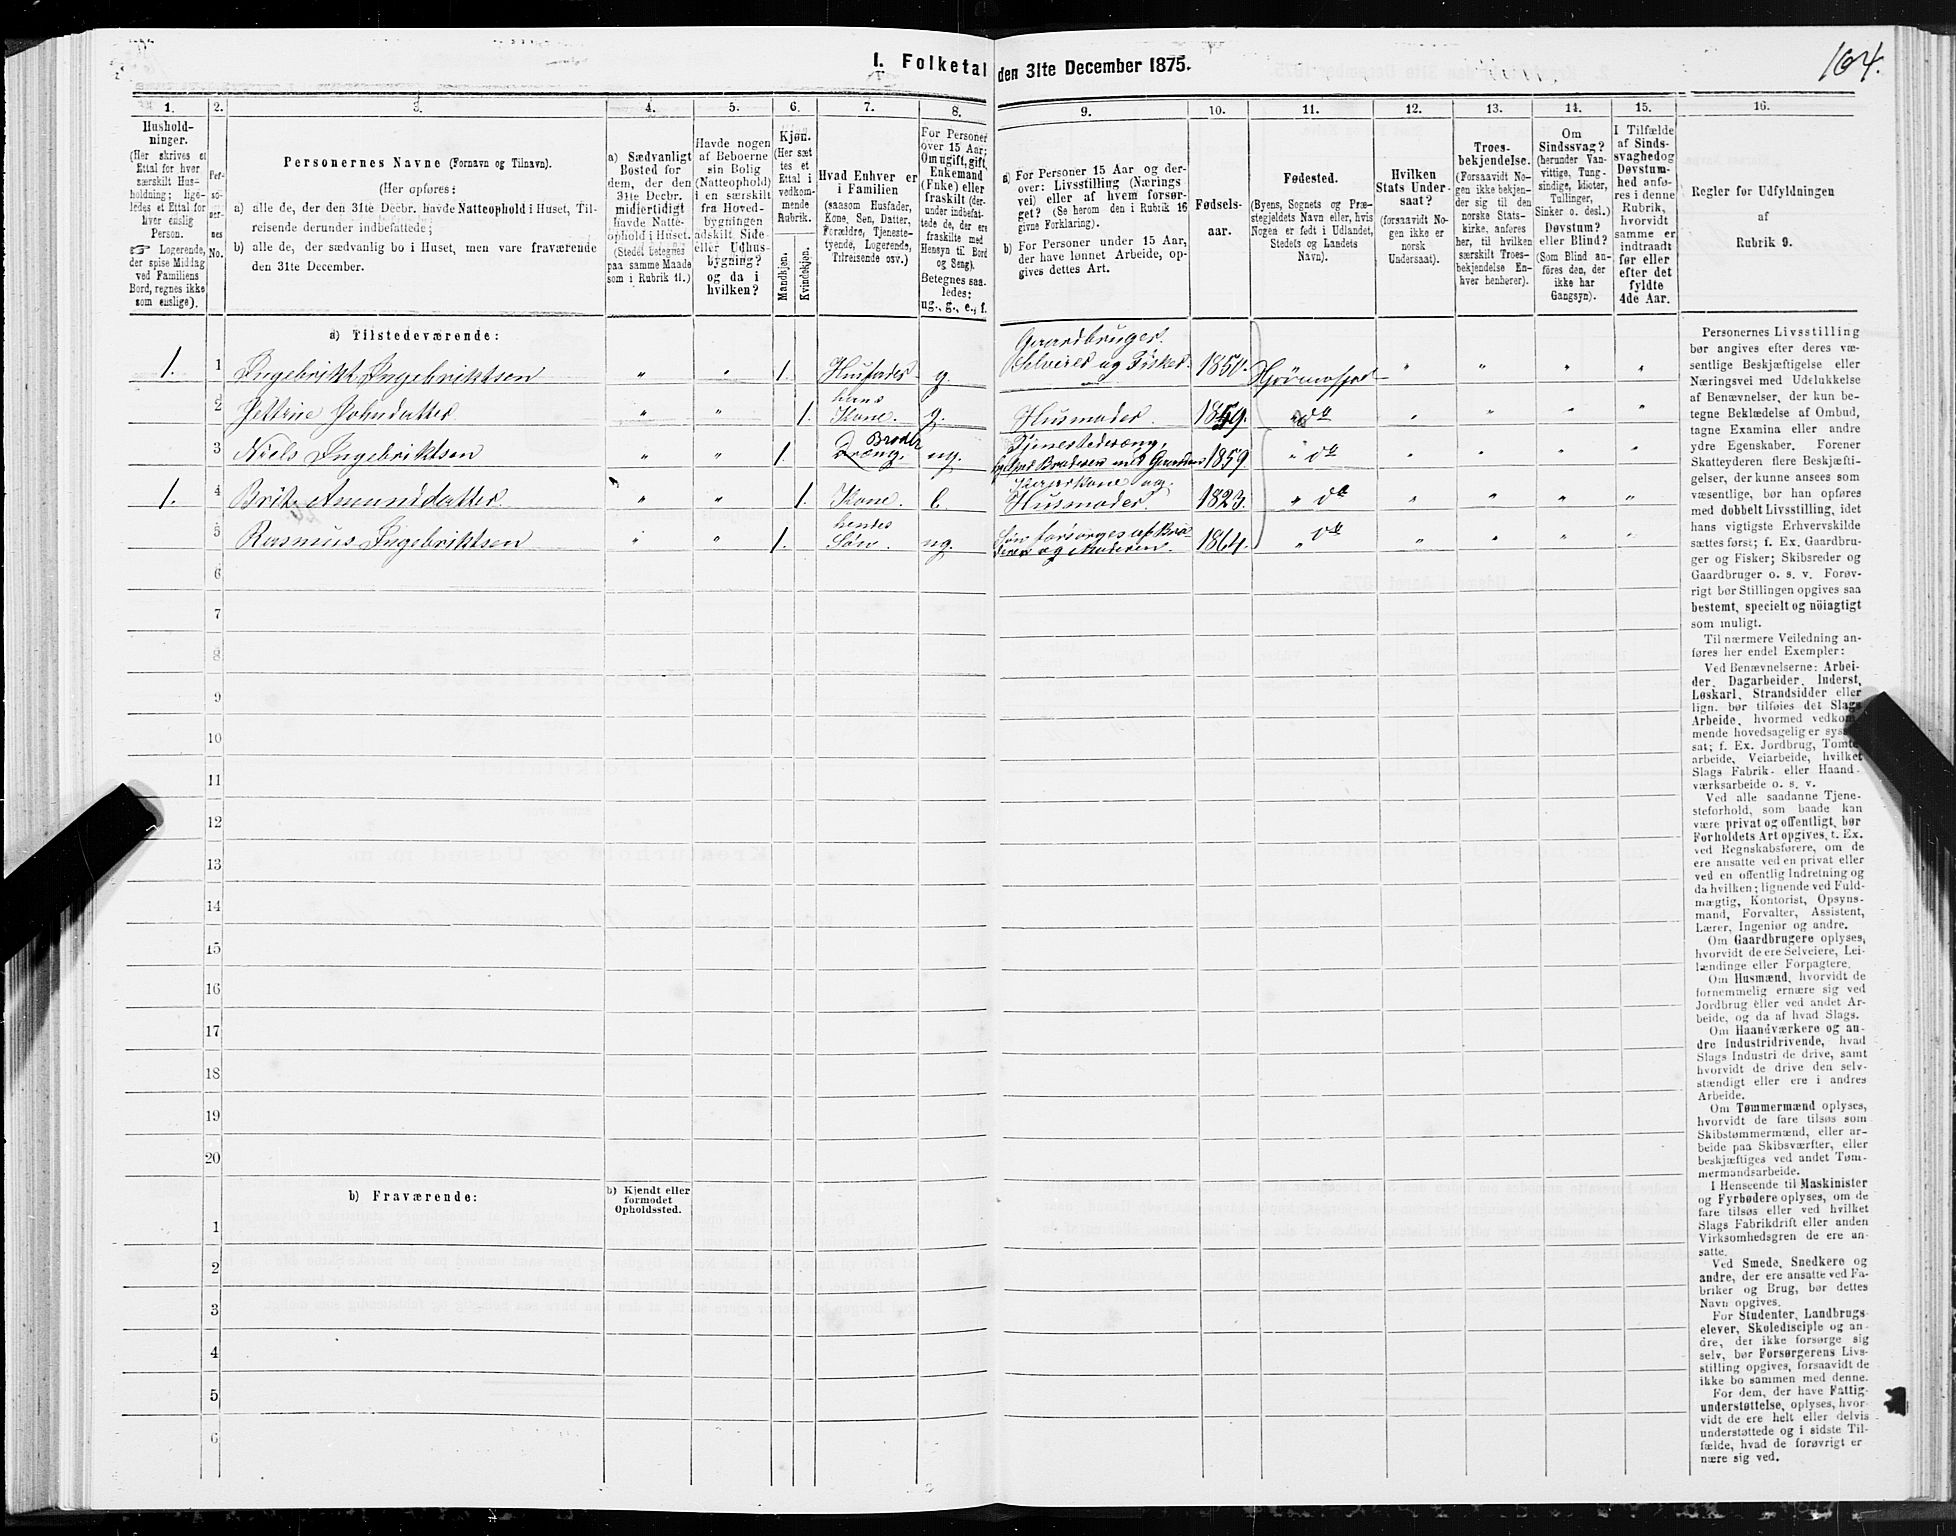 164.
I. Folketal den 31te December 1875.
1. 2. 3. 4. 5. 6. 7. 8. 9. 10. 11. 12. 13. 14. 15. 16.
Hushold-
ninger.
(Her skrives et
Ettal for hver
særskilt Hus-
holdning; lige-
ledes et Ettal for
hver enslig
Person.
☞ Logerende,
der spise Middag
ved Familiens
Bord, regnes ikke
som enslige).
Per-
so-
ner-
nes
No.
Personernes Navne (Fornavn og Tilnavn).
(Her opføres:
a) alle de, der den 31te Decbr. havde Natteophold i Huset, Til-
reisende derunder indbefattede;
b) alle de, der sædvanlig bo i Huset, men vare fraværende
den 31te December.
a) Sædvanligt
Bosted for
dem, der den
31te Decbr.
midlertidigt
havde Natte-
ophold i Huset.
(Stedet betegnes
paa samme Maade
som i Rubrik 11.)
Havde nogen
af Beboerne
sin Bolig
(Natteophold)
i en særskilt
fra Hoved-
bygningen
adskilt Side-
eller Udhus-
bygning?
og da i
hvilken?
Kjøn.
(Her sæt
tes et
Ettal i
vedkom-
mende
Rubrik.
Mandkjøn.
Kvindekjøn.
Hvad Enhver er
i Familien
(saasom Husfader,
Kone, Søn, Datter,
Forældre, Tjeneste-
tyende, Logerende,
Tilreisende osv.)
For Personer
over 15 Aar;
Om ugift, gift,
Enkemand
(Enke) eller
fraskilt (der-
under indbefat-
tede de, der ere
fraskilte med
Hensyn til Bord
og Seng).
Betegnes saa-
ledes:
ug., g., e., f.
a) For Personer 15 Aar og der-
over: Livsstilling (Nærings
vei) eller af hvem forsør-
get? (Se herom den i Rubrik 16
givne Forklaring).
b) For Personer under 15 Aar,
der have lønnet Arbeide, op-
gives dettes Art.
Fødsels-
aar.
Fødested.
(Byens, Sognets og Præ-
stegjeldets Navn eller, hvis
Nogen er født i Udlandet,
Stedets og Landets
Navn).
Hvilken
Stats Under-
saat?
(forsaavidt No-
gen ikke er
norsk
Undersaat).
Troes-
bekjendelse.
(Forsaavidt No-
gen ikke bekjen-
der sig til den
norske Stats-
kirke, anføres
her, til hvilken
særskilt Troes-
bekjendelse En-
hver henhører).
Om
Sindssvag?
(herunder Van-
vittige, Tung-
sindige, Idioter,
Tullinger,
Sinker o. desl.)
Døvstum?
eller Blind?
(Som Blind an-
føres den, der
ikke har
Gangsyn).
I Tilfælde
af Sinds-
svaghed og
Døvstum-
hed anfø-
res i denne
Rubrik,
hvorvidt
samme er
indtraadt
før eller
efter det
fyldte
4de Aar.
Regler for Udfyldningen
af
Rubrik 9.
a) Tilstedeværende:
1. 1 Ingebrikt Ingebriktsen " " 1. Husfader g. Gaardbruger Selveier og Fisker 1850. " " " "
2 Johndatter " " 1. hans Kone. g. Husmoder. " do " " " "
3 Niels Ingebriktsen " " 1. Broder Dræng. ug. Tjenestedræng, 1859 " do " " " "
1. 4 Brit Amundsdatter " " 1. Kone. e Kaarkone og Husmoder. 1823. " do " " " "
5 Rasmus Ingebriktsen " " 1. hendes Søn. ug. Søn forsørges af Bro- deren og Moderen. 1864. " do " " " "
6
7
8
9
10
11
12
13
14
15
16
17
18
19
20
b) Fraværende:
b) Kjendt eller
formodet
Opholdssted.
1
2
3
4
5
6
Personernes Livsstilling
bør angives efter deres væ-
sentlige Beskjæftigelse eller
Næringsvei med Udelukkelse
af Benævnelser, der kun be-
tegne Beklædelse af Ombud,
tagne Examina eller andre
ydre Egenskaber. Forener
Skatteyderen flere Beskjæfti-
gelser, der kunne ansees som
væsentlige, bør han opføres
med dobbelt Livsstilling, idet
hans vigtigste Erhvervskilde
sættes først; f. Ex. Gaardbru-
ger og Fisker; Skibsreder og
Gaardbruger o. s. v. Forøv-
rigt bør Stillingen opgives saa
bestemt, specielt og nöiagtigt
som muligt.
Til nærmere Veiledning an-
føres her endel Exempler:
Ved Benævnelserne: Arbei-
der, Dagarbeider, Inderst,
Løskarl, Strandsidder eller
lign. bør tilføies det Slags
Arbeide, hvormed vedkom-
mende hovedsagelig er syssel-
sat; f. Ex. Jordbrug, Tomte-
arbeide, Veiarbeide, hvilket
Slags Fabrik- eller Haand-
værksarbeide o. s. v.
Ved alle saadanne Tjene-
steforhold, som baade kan
være privat og offentligt, bør
Forholdets Art opgives, t. Ex.
ved Regnskabsførere, om de
ere ansatte ved en privat eller
ved en offentlig Indretning og
da hvilken; lignende ved Fuld-
mægtig, Kontorist, Opsyns-
mand, Forvalter, Assistent,
Lærer, Ingeniør og andre.
Om Gaardbrugere oplyses,
hvorvidt de ere Selveiere, Lei-
lændinge eller Forpagtere.
Om Husmænd, hvorvidt de
fornemmelig ernære sig ved
Jordbrug eller ved andet Ar-
beide, og da af hvad Slags.
Om Haandværkere og an-
dre Industridrivende, hvad
Slags Industri de drive, samt
hvorvidt de drive den selv-
stændigt eller ere i andres
Arbeide.
Om Tømmermænd oplyses,
hvorvidt de fare tilsøs som
Skibstømmermænd, eller ar-
beide paa Skibsværfter, eller
beskjæftiges ved andet Tøm-
mermandsarbeide.
I Henseende til Maskinister
og Fyrbødere oplyses, om de
fare tilsøs eller ved hvilket
Slags Fabrikdrift eller anden
Virksomhedsgren de ere an-
satte.
Ved Smede, Snedkere og
andre, der ere ansatte ved Fa-
briker og Brug, bør dettes
Navn opgives.
For Studenter, Landbrugs-
elever, Skoledisciple og an-
dre, der ikke forsørge sig
selv, bør Forsørgerens Livs-
stilling opgives, forsaavidt de
ikke bo sammen med denne.
For dem, der have Fattig-
understøttelse, oplyses, hvor-
vidt de ere helt eller delvis
understøttede og i sidste Til-
fælde, hvad de forøvrigt er
nære sig ved.